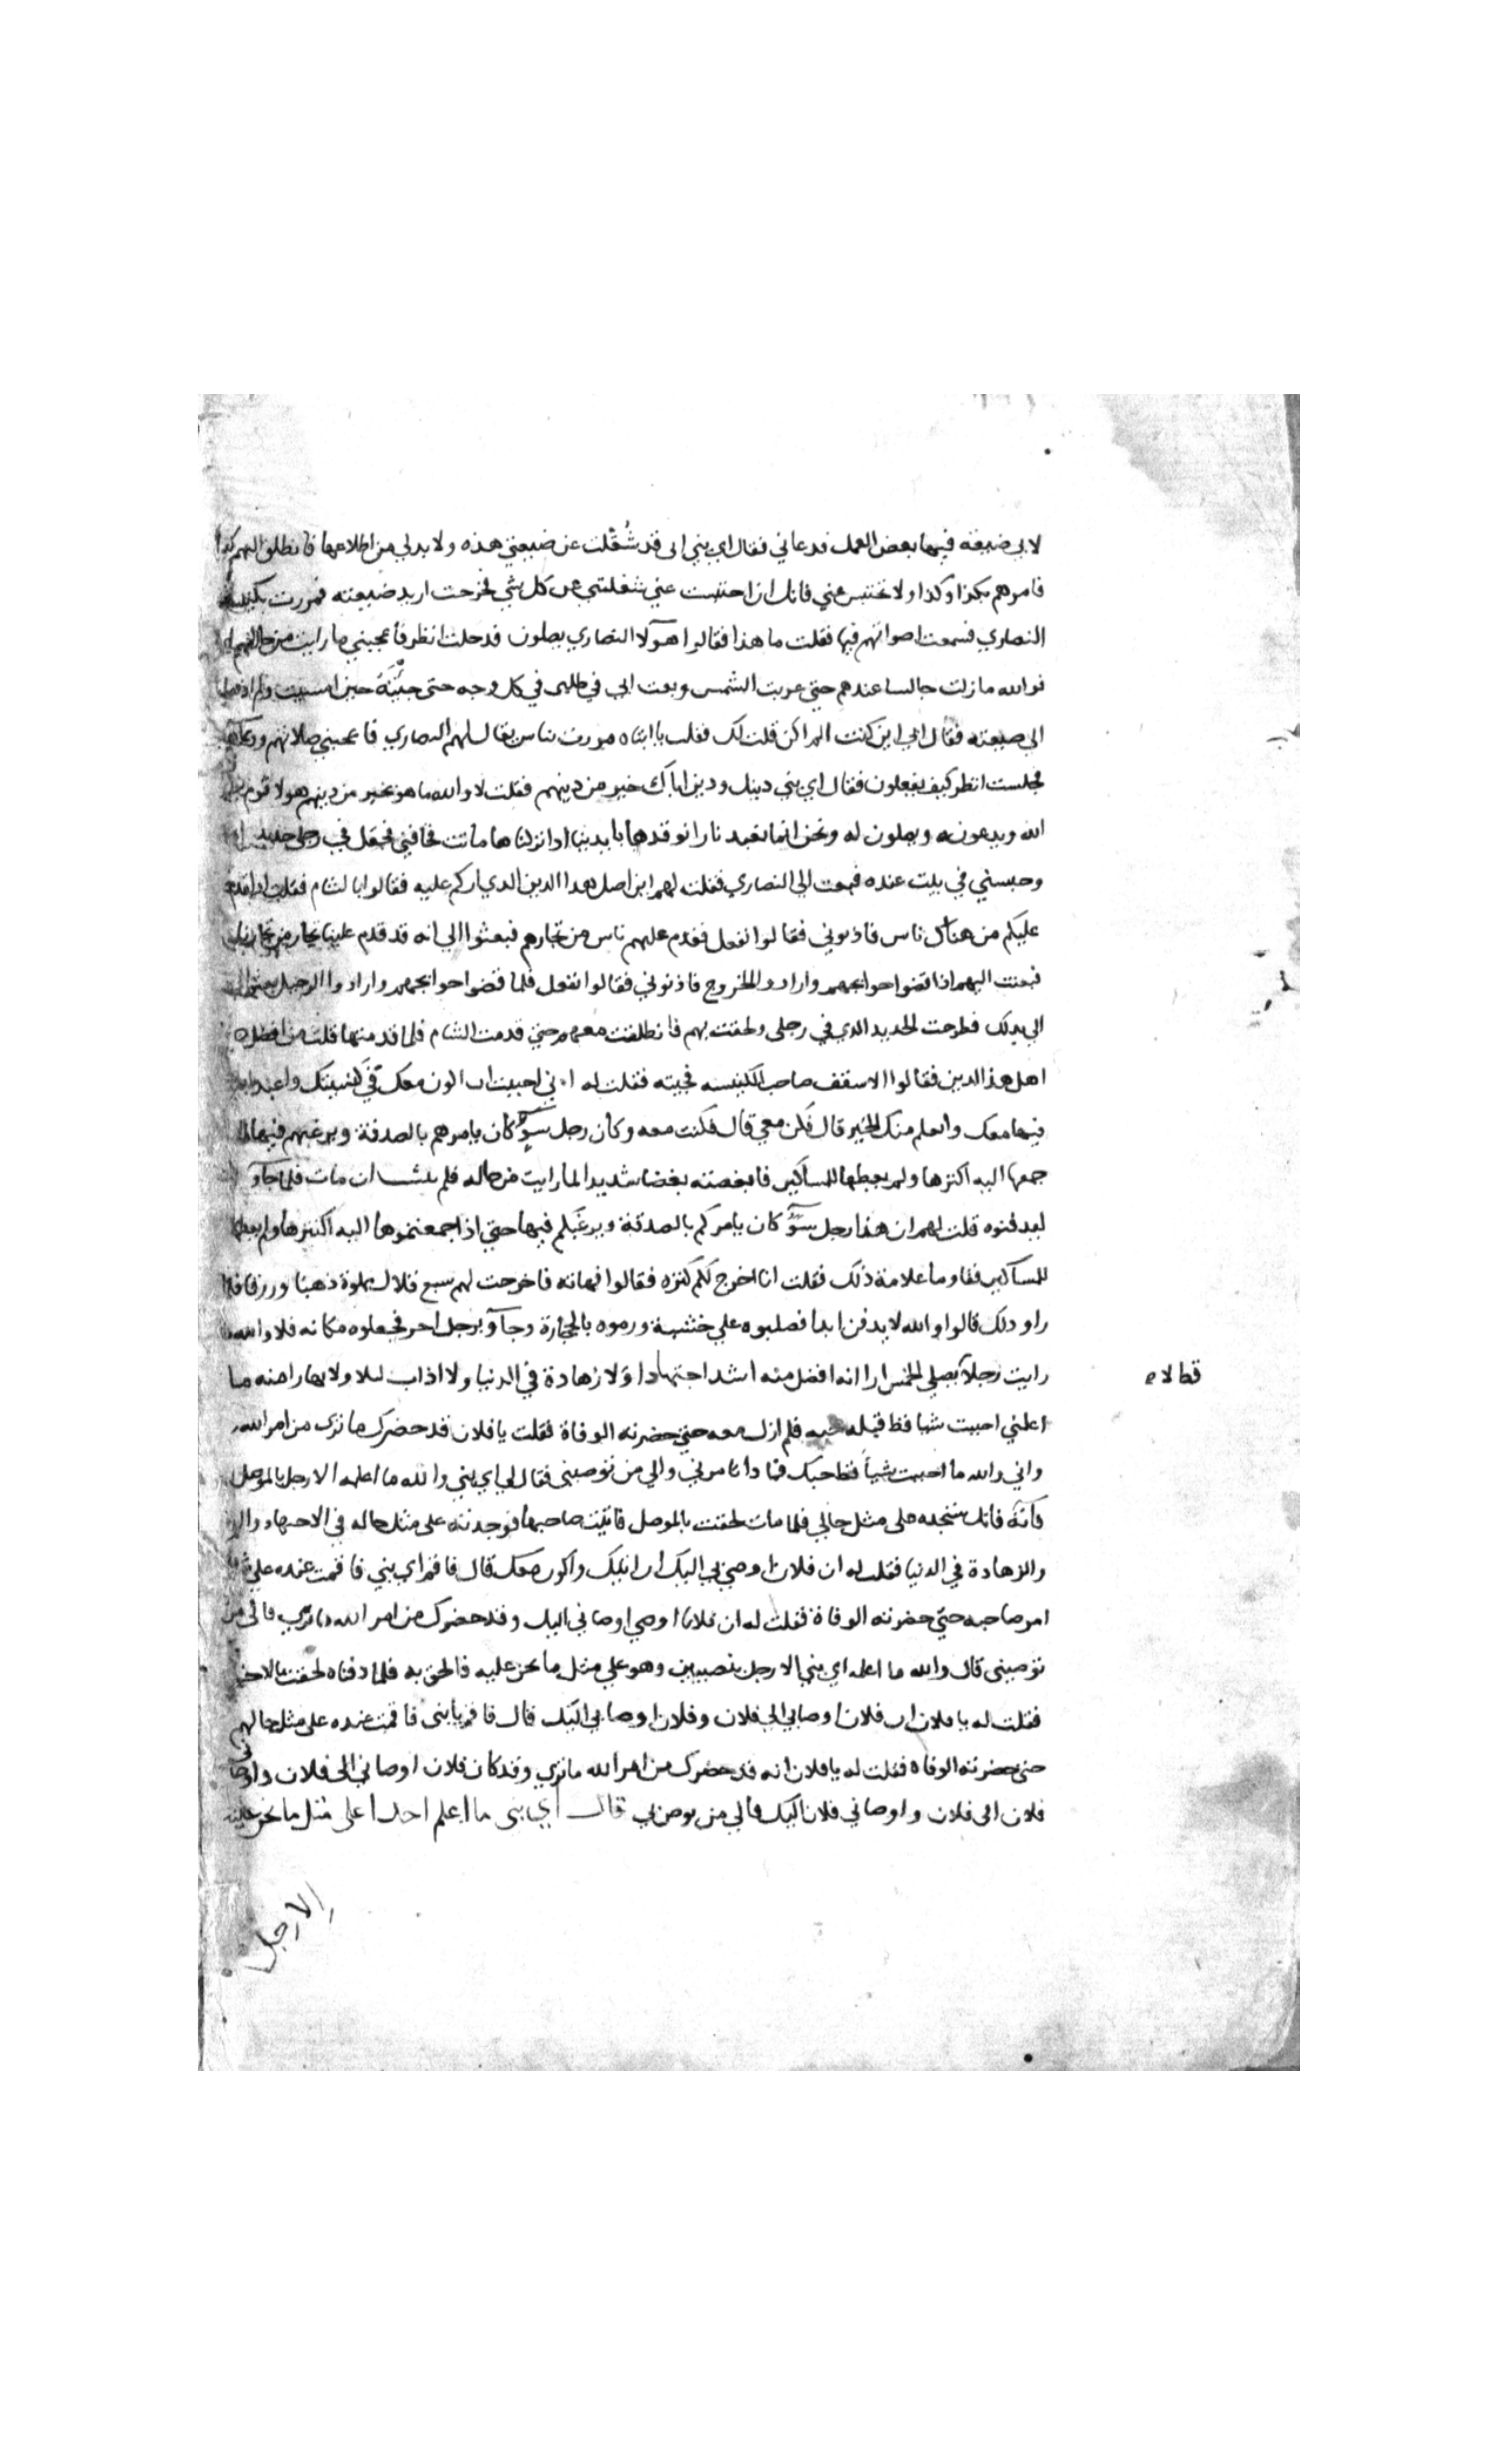 لابي ضيعة فيها بعض العمل فدعاني فقال اي بني اني قد شُغلت عن ضيعتي هذه ولا بد لي من اطلاعها فانطلق اليهم
فامرهم بكذا وكذا ولا تحتبس عني فانك ان احتبست عني شغلتني عن كل شي فخرجت اريد ضيعته فمررت بكنيسة
النصاري فسمعت اصواتهم فيها فقلت ما هذا فقالوا هولآ النصاري يصلون فدخلت انظر فاعجبني ما رايت من حالهم
فوالله ما زلت جالسا عندهم حتي غربت الشمس وبعث ابي في طلبي في كل وجه حتى جيتُه حين امسيت ولم اذهب
الي ضيعته فقال ابي اين كنت الم اكن قلت لك فقلت يا ابتاه مررت بناس يقال لهم النصاري فاعجبني صلاتهم ودعآهم
فجلست انظر كيف يفعلون فقال اي بني دينك ودين اباك خير من دينهم فقلت لا والله ما هو بخير من دينهم هولا قوم
الله ويدعونه ويصلون له ونحن انما نعبد نارا نوقدها بايدينا اذا تركناها ماتت فخافني فجعل في رجلي حديدا
وحبسني في بيت عنده فبعثت الي النصاري فقلت لهم اين اصل هذا الدين الذي اراكم عليه فقالوا بالشام فقلت اذا قدم
عليكم من هناك ناس فاذنوني فقالوا نفعل فقدم عليهم ناس من تجارهم فبعثوا الي انه قد قدم علينا تجار من تجارنا
فبعثت اليهم اذا قضوا حوايجهم وارادوا الخروج فاذنوني فقالوا نفعل فلما قضوا حوايجهم وارادوا الرحيل بعثوا
الي بذلك فطرحت الحديد الذي في رجلي ولحقت بهم فانطلقت معهم حتي قدمت الشام فلما قدمتها قلت من افضل
اهل هذ الدين فقالوا الاسقف صاحب الكنيسه فجيته فقلت له اني احببت ان اكون معك في كنيستك واعبد الله
فيها معك واتعلم منك الخير قال فكن معي قال فكنت معه وكان رجل سوٍّ كان يامرهم بالصدقة ويرغبهم فيها فاذا
جمعها اليه اكنزها ولم يعطها للمساكين فابغضته بغضا شديدا لما رايت من حاله فلم يلبث ان مات فلما جآو
ليدفنوه قلت لهم ان هذا رجل سوّ كان يامركم بالصدقة ويرغبكم فيها حتي اذا جمعتموها اليه اكنزها ولم يعطها
للمساكين فقا وما علامة ذلك فقلت انا اخرج لكم كنزه فقالوا فهاته فاخرجت لهم سبع قلال مملوة ذهبا وورقا فلما
راو ذلك قالوا والله لا يدفن ابدا فصلبوه علي خشبة ورموه بالحجارة وجآو برجل اخر فجعلوه مكانه فلا والله ما
رايت رجلاً يصلي الخمس ارا انه افضل منه اشد اجتهادا ولا زهادة في الدنيا ولا اذاب ليلا ولا نهارا منه ما
قط لا م
اعلمني احببت شيا قط قبله حبه فلم ازل معه حتي حضرته الوفاة فقلت يا فلان قد حضرك ما تري من امر الله
واني والله ما احببت شياً قط حبك فماذا تامرني والي من توصيني فقال لي اي بني والله ما اعلمه الا رجل بالموصل
فأته فانك ستجده على مثل حالي فلما مات لحقت بالموصل فاتيت صاحبها فوجدته على مثل حاله في الاجتهاد
والزهادة في الدنيا فقلت له ان فلانا اوصي بي اليك ان اتيك واكون معك قال فاقم اي بني فاقمت عنده علي مثل
امر صاحبه حتي حضرته الوفاة فقلت له ان فلانا اوصي اوصاني اليك وقد حضرك من امر الله ما تري فالي من
توصيني قال والله ما اعلمه اي بني الا رجل بنصيبين وهو علي مثل ما نحن عليه فالحق به فلما دفناه لحقت بالاخر
فقلت له يا فلان ان فلان اوصا بي الي فلان وفلان اوصا بي اليك قال فاقم يا بني فاقمت عنده على مثل حالهم
حتي حضرته الوفاه فقلت له يا فلان انه قد حضرك من امر الله ما تري وقد كان فلان اوصاني الى فلان واوصاني
فلان الى فلان واوصاني فلان اليك فالي من توصي بي قال اي بني ما اعلم احدا على مثل ما نحن عليه
الا رجل